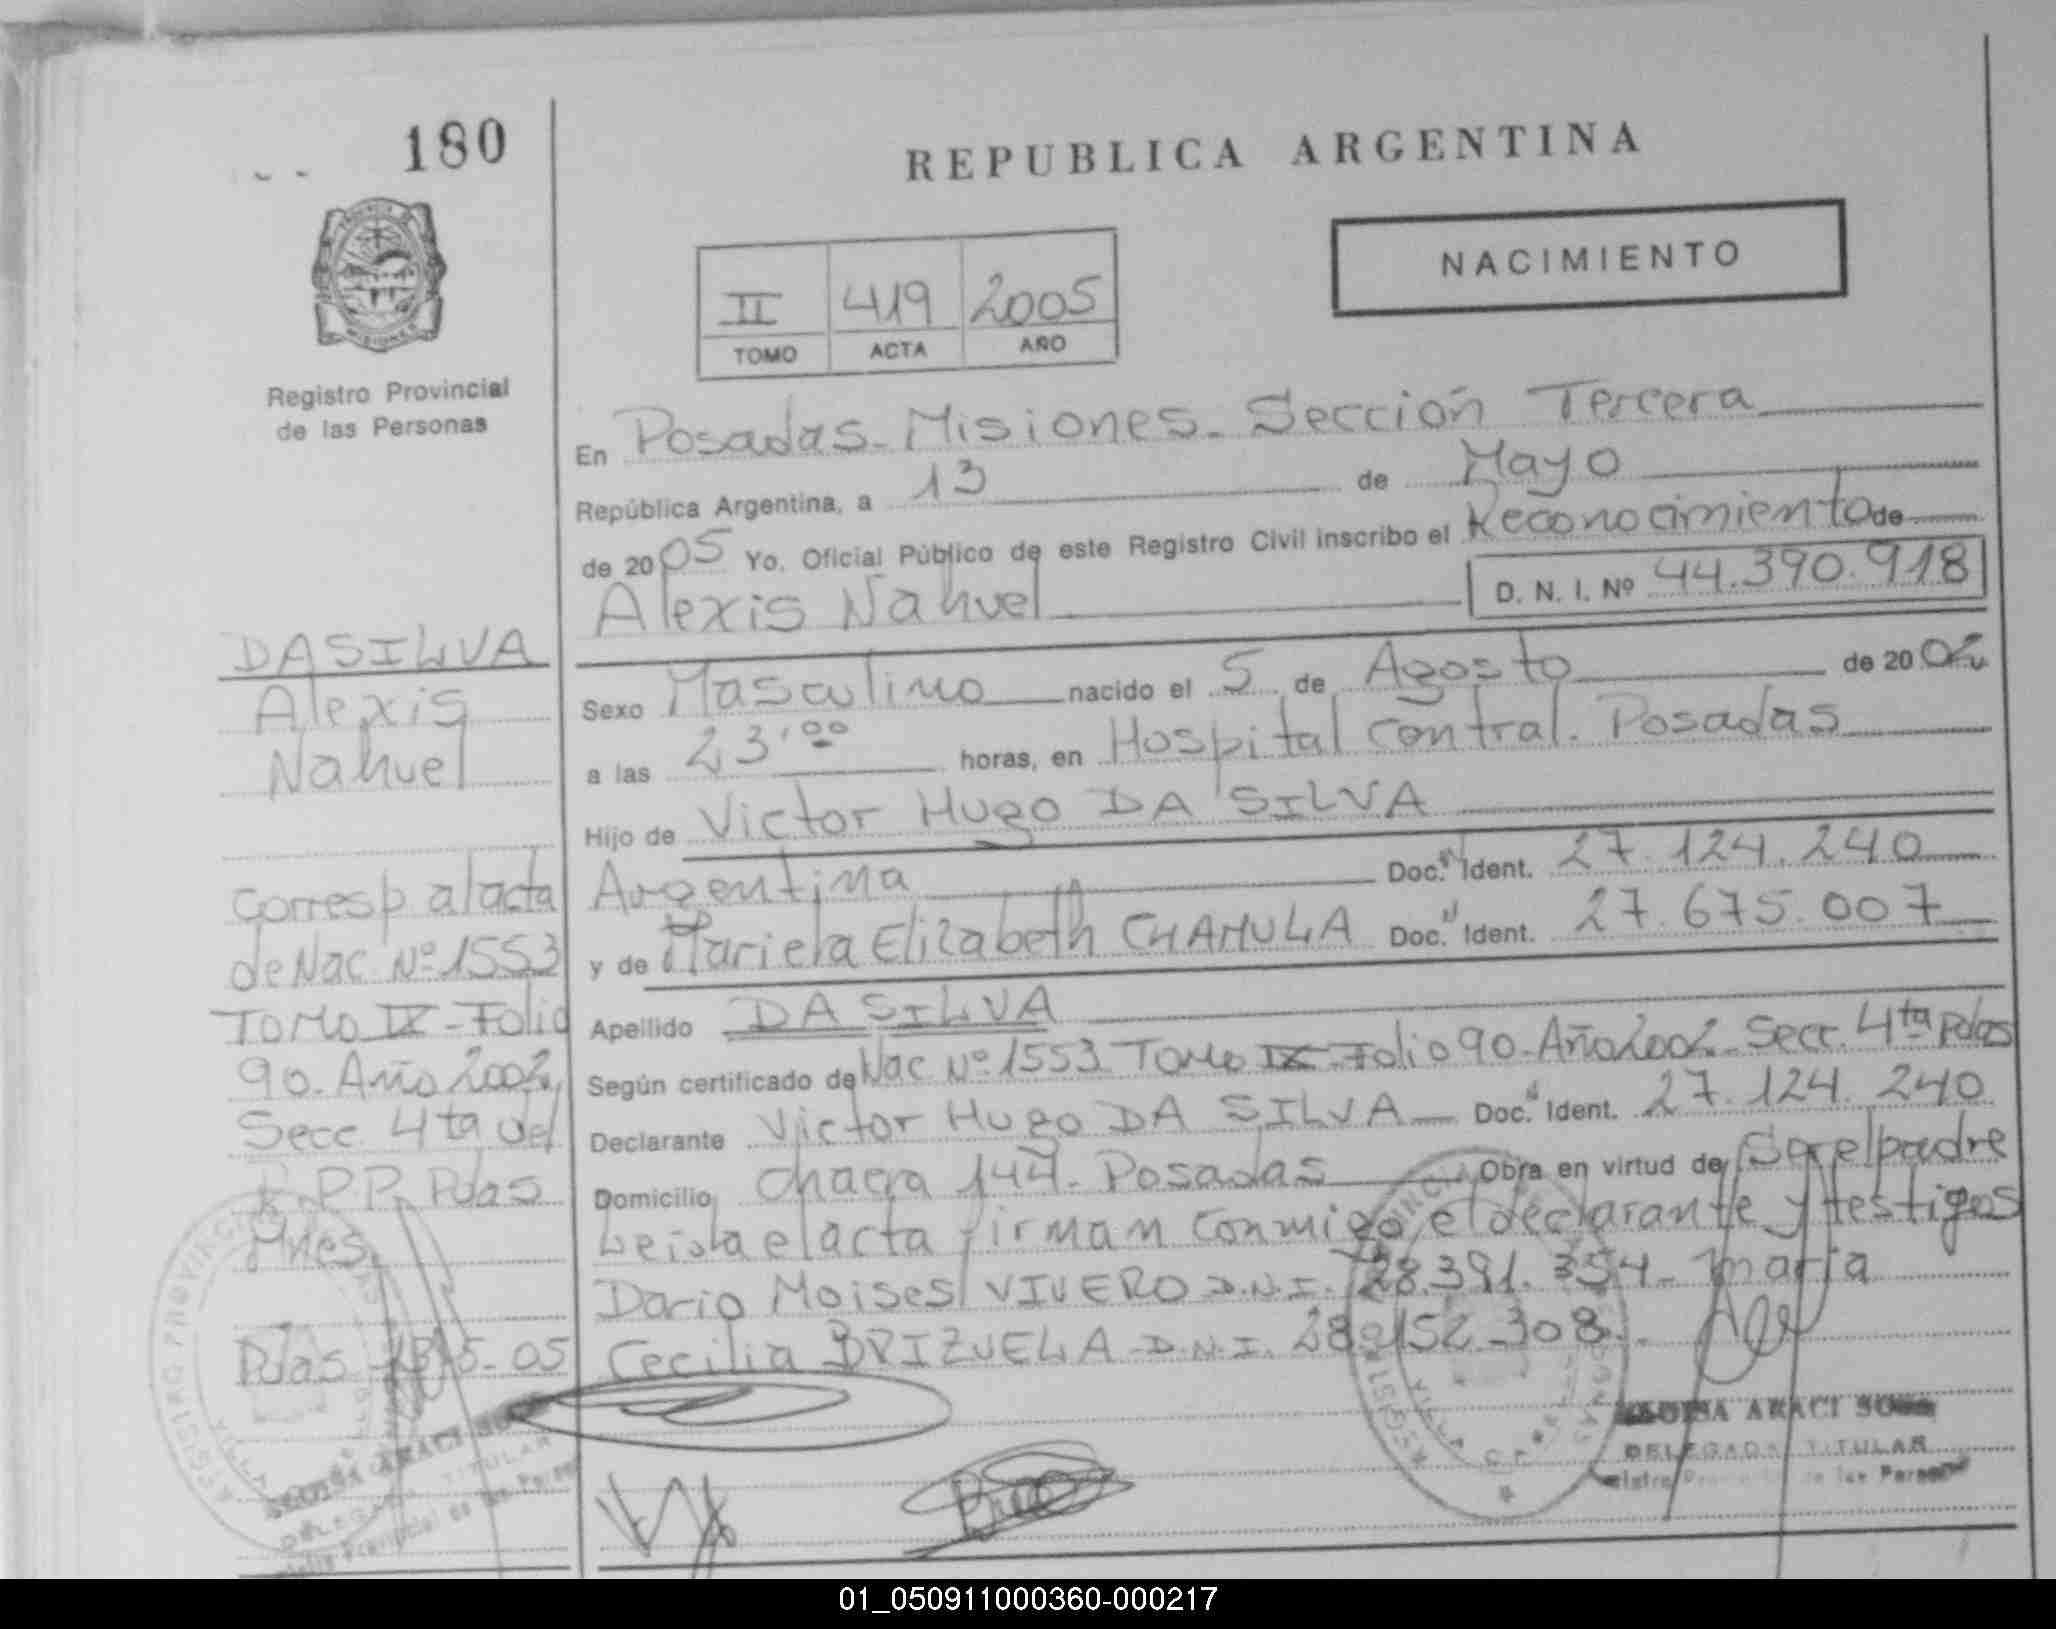 180
REPUBLICA ARGENTINA
NACIMIENTO
II 419 2005
TOMO ACTA AÑO
Registro Provincial
de las Personas
En Posadas - Misiones - Sección Tercera
República Argentina, a 13 de Mayo
de 2005 Yo. Oficial Público de este Registro Civil inscribo el Reconocimiento de
Alexis Nahuel D. N. I. Nº 44.390.918
Sexo Masculino nacido el 5 de Agosto de 2002
a las 23,00 horas, en Hospital Central. Posadas
Hijo de Victor Hugo DA SILVA
Argentina Doc. Ident. 27.124.240
y de Mariela Elizabeth CHAMULA Doc. Ident. 27.675.007
Apellido DA SILVA
Según certificado de Nac Nº 1553 Tomo IX - Folio 90 - Año 2002 - Secc. 4ta Pdas
Declarante Victor Hugo DA SILVA Doc. Ident. 27.124.240
Domicilio Chacra 144 - Posadas Obra en virtud de Ser el padre
Leida el acta firman conmigo el declarante y testigos
Dario Moises VIVERO D.N.I. 28.391.354 - Maria
Cecilia BRIZUELA D.N.I. 28.152.308
DA SILVA
Alexis
Nahuel
Corresp al acta
de Nac Nº 1553
Tomo IX - Folio
90 - Año 2002
Secc. 4ta del
R.P.P. Pdas
Mnes.
Pdas 13-5-05
ARACI
DELEGADA TITULAR
01_050911000360-000217